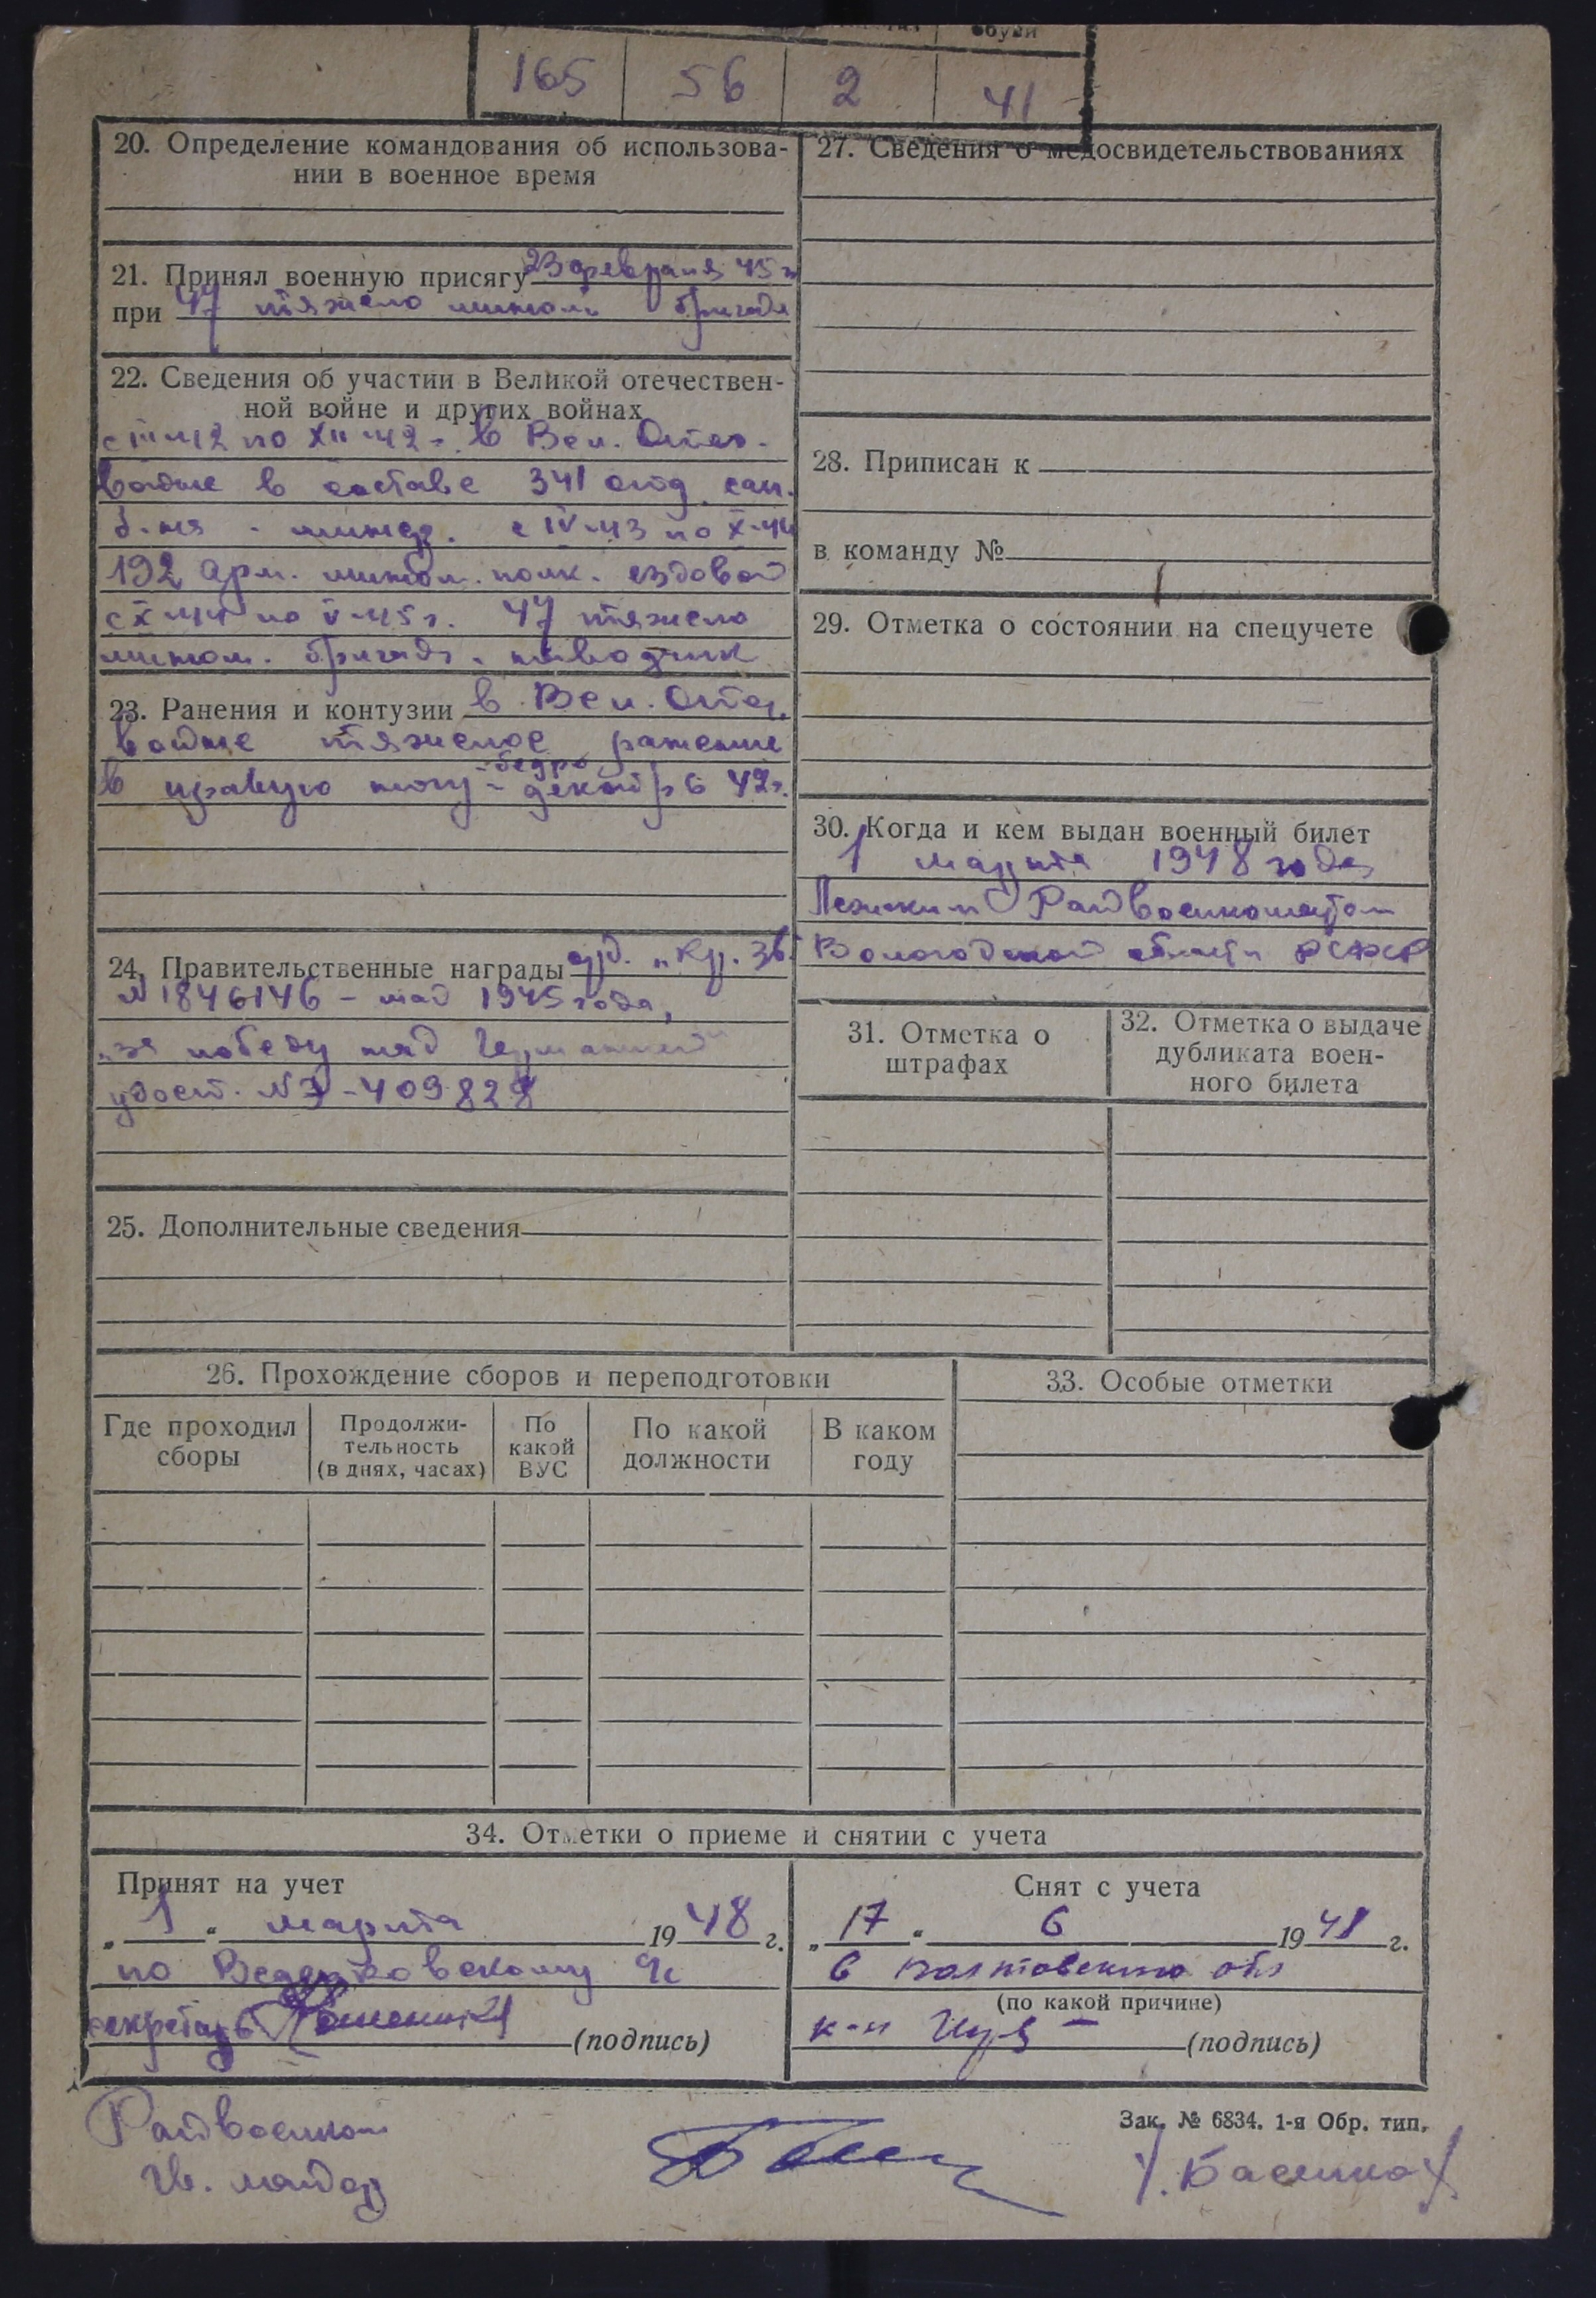 обуви
165 56 2 41
20. Определение командования об использова-
нии в военное время
21. Принял военную присягу 23 февраля 45 г
при 47 тяжело мином. бригаде
22. Сведения об участии в Великой отечествен-
ной войне и других войнах
с III-42 по XII-42 г. в Вел. Отеч.
войне в составе 341 отд. сап.
б-на - минер. с IV-43 по X-44
192 арм. мином. полк. ездовой
с X-44 по V-45 г. 47 тяжело
мином. бригада. наводчик
23. Ранения и контузии в Вел. Отеч.
войне тяжелое ранение
в правую ногу - бедро - декабрь 42 г.
24. Правительственные награды орд. „Кр. Зв.
№ 1846146 - май 1945 года,
„за победу над Германией"
удост. № Э-409828
25. Дополнительные сведения
26. Прохождение сборов и переподготовки
Где проходил сборы
Продолжи-
тельность
(в днях, часах)
По
какой
ВУС
По какой
должности
В каком
году
27. Сведения о медосвидетельствованиях
28. Приписан к
в команду №
29. Отметка о состоянии на спецучете
30. Когда и кем выдан военный билет
1 марта 1948 года
Райвоенкоматом
Вологодской области РСФСР
31. Отметка о
штрафах
32. Отметка о выдаче
дубликата воен-
ного билета
33. Особые отметки
34. Отметки о приеме и снятии с учета
Принят на учет
„ 1 " марта 1948 г.
по
секретарь (подпись)
Снят с учета
„ 17 " 6 1948 г.
в обл
(по какой причине)
к-н (подпись)
Райвоенком
Гв. майор
Зак. № 6834. 1-я Обр. тип.